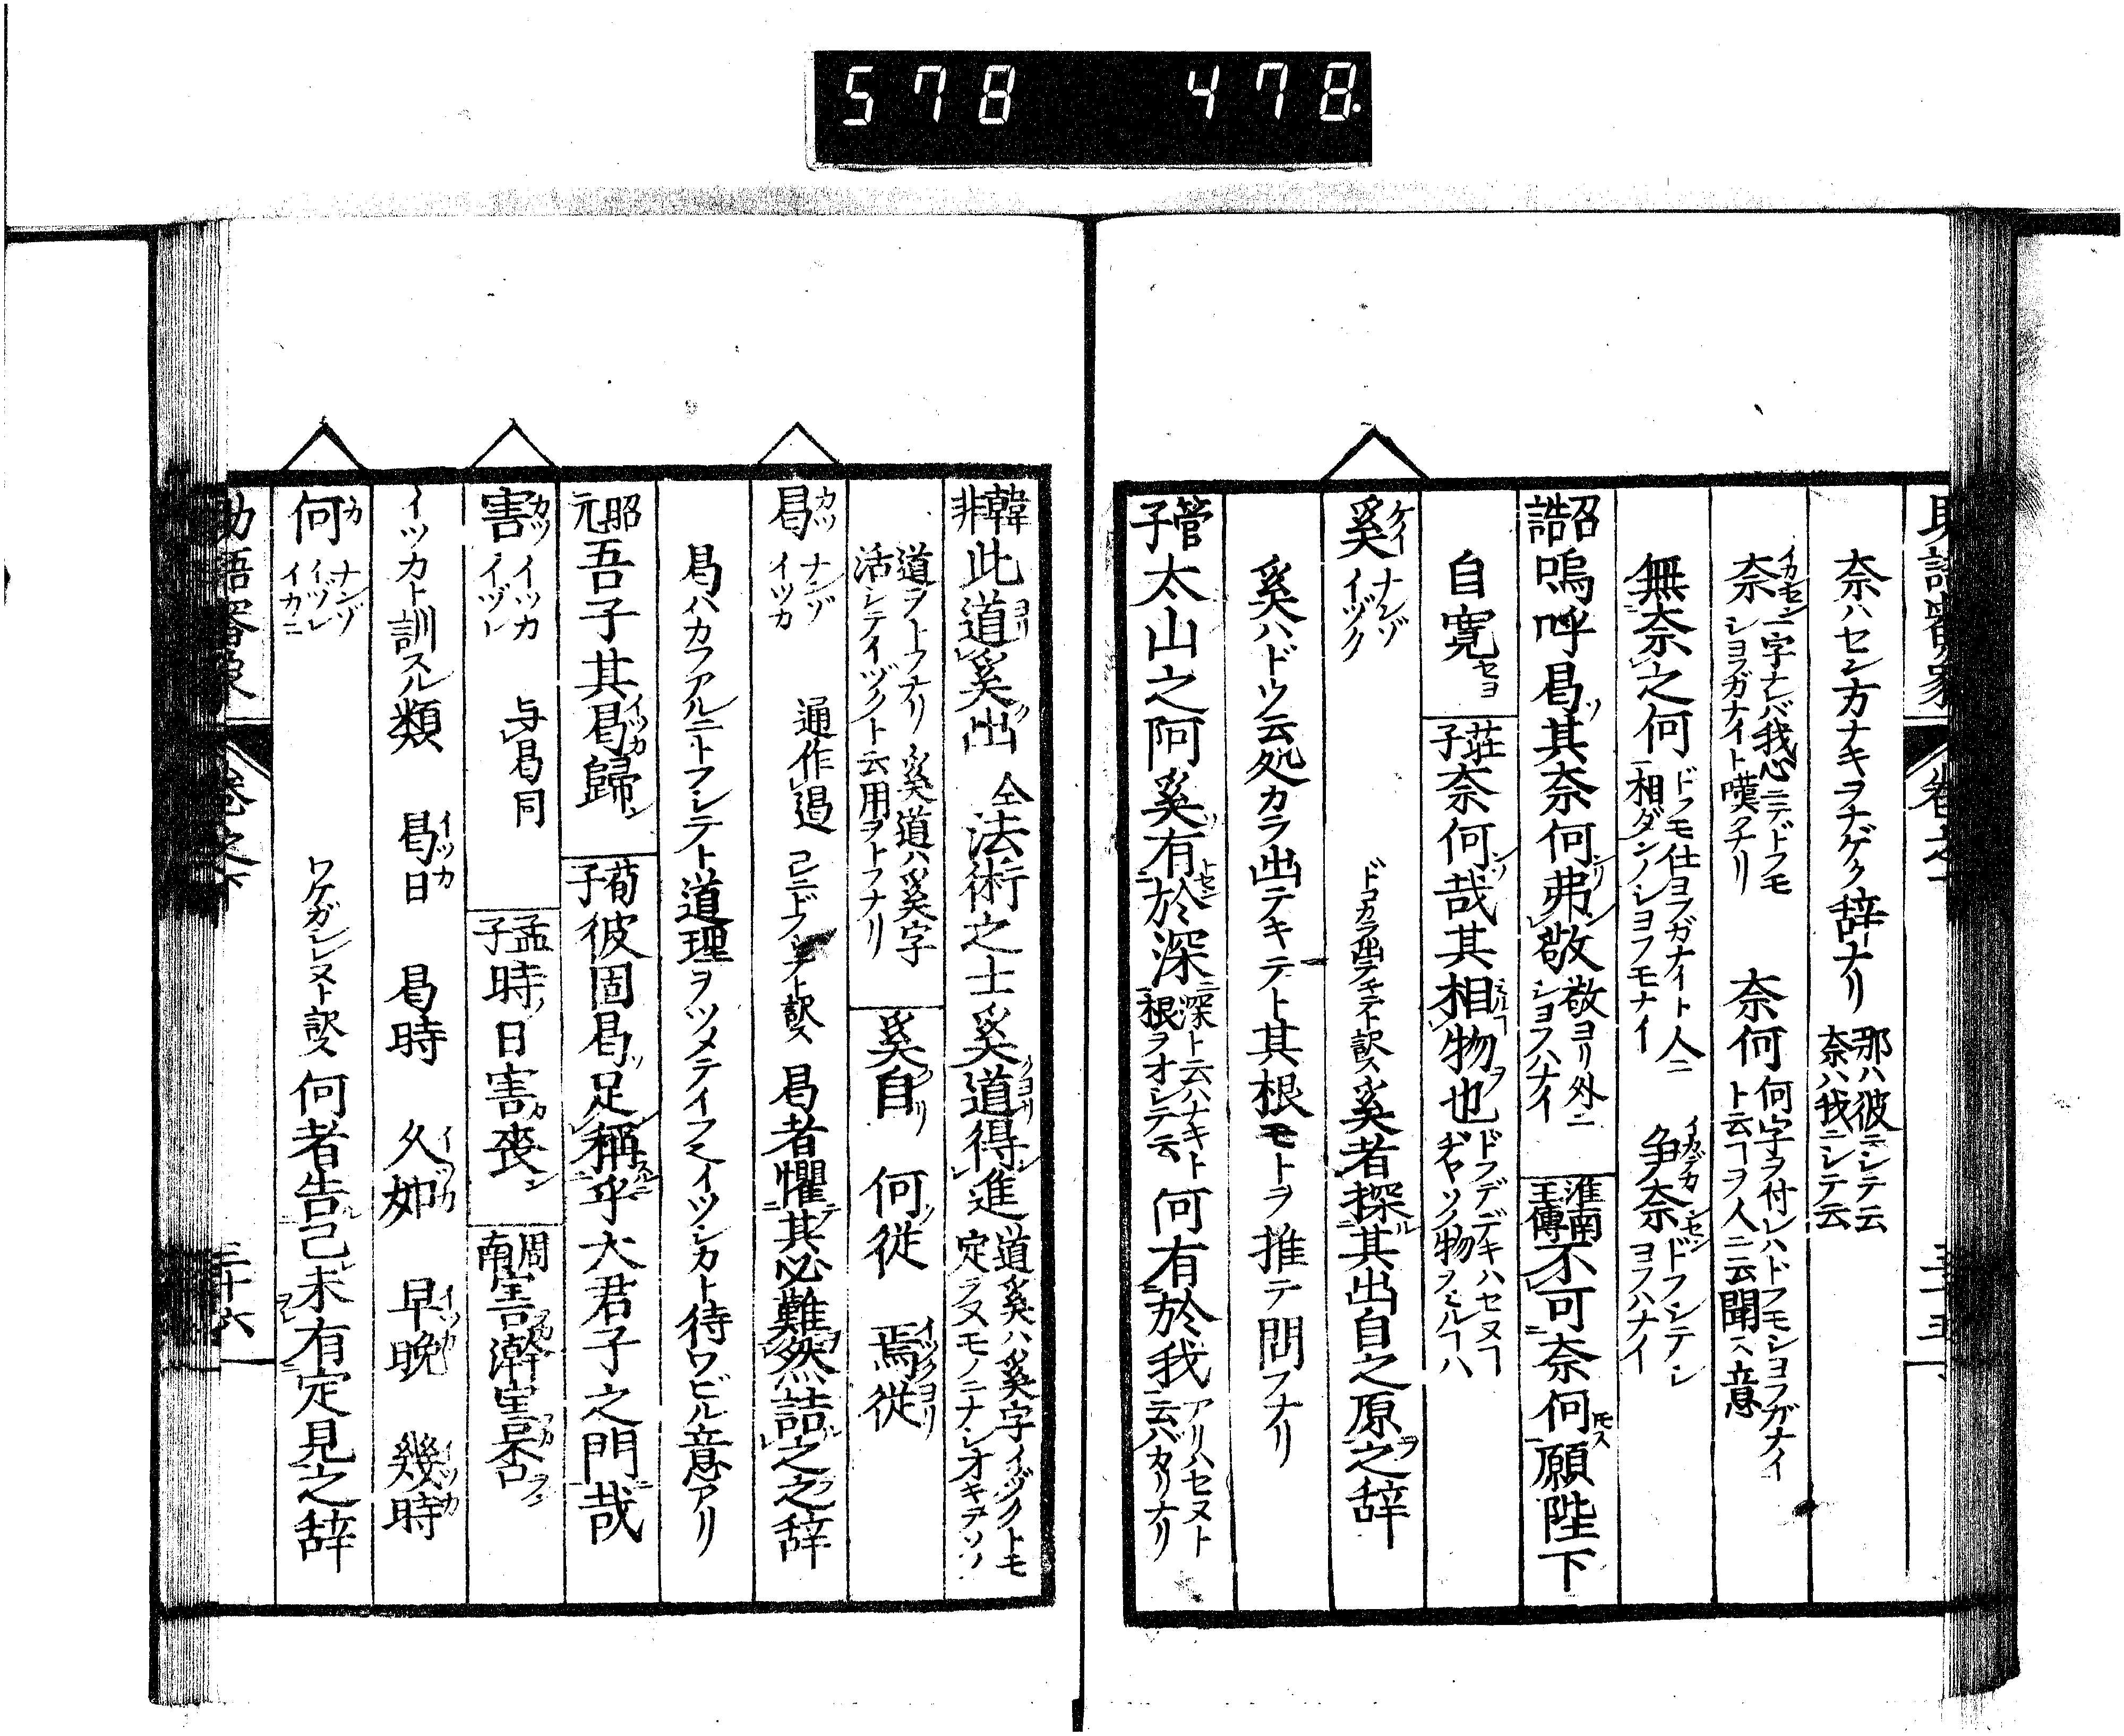 578 478.
助語審象 卷之下 三十五
奈ハセン方ナキヲナゲク辞ナリ 那ハ彼ニシテ云 奈ハ我ニシテ云
奈イカセン 一字ナレバ我心ニテドフモ シヨフガナイト嘆クナリ 奈何 何字ヲ付レハドフモシヨフガナイ ト云ヿヲ人ニ云聞ス意
無奈之何 ドフモ仕ヨフガナイト人ニ 相ダンノシヨフモナイ 争奈イカデカセン ドフシテシ ヨフハナイ
召誥 嗚呼曷其奈何弗敬 敬ヨリ外ニ シヨフハナイ 淮南王傳 不可奈何願陛下
自寛セヨ 荘子 奈何哉其相物也 ドフデデキハセヌヿ ヂヤソノ物フミルヿハ
奚ケイ ナンゾ イヅク ドコカラ出テキテト訳ス 奚者探其出自之原之辞
奚ハドウ云処カラ出テキテト其根モトヲ推テ問フナリ
管子 太山之阿奚有於深 深ト云ハナキト 根ヲオシテ云 何有於我 アリハセヌト 云バカリナリ
韓非 此道奚出 仝 法術之士奚道得進 道奚ハ奚字イヅクトモ 定ラヌモノニナシオキヲソノ
道ヲトフナリ 奚道ハ奚字 活シテイヅクト云用ヲトフナリ 奚自 何従 焉従イヅクヨリ
曷カツ ナンゾ イツカ 通作遏 已ニドフシテト訳ス 曷者懼其必難然詰之之辞
曷ハカフアルニドフシテト道理ヲツメテイフ又イツシカト待ワビル意アリ
昭元 吾子其曷歸 荀子 彼固曷足稱乎大君子之門哉
害カツ イツカ イヅレ 与曷同 孟子 時日害喪 周南 害澣害否
イツカト訓スル類 曷日イツカ 曷時 久如イツカ 早晩イツカ 幾時イツカ
何カ ナンゾ イヅレ イカニ ワケガシレヌト訳ス 何者告己未有定見之辞
助語審象 卷之下 三十六